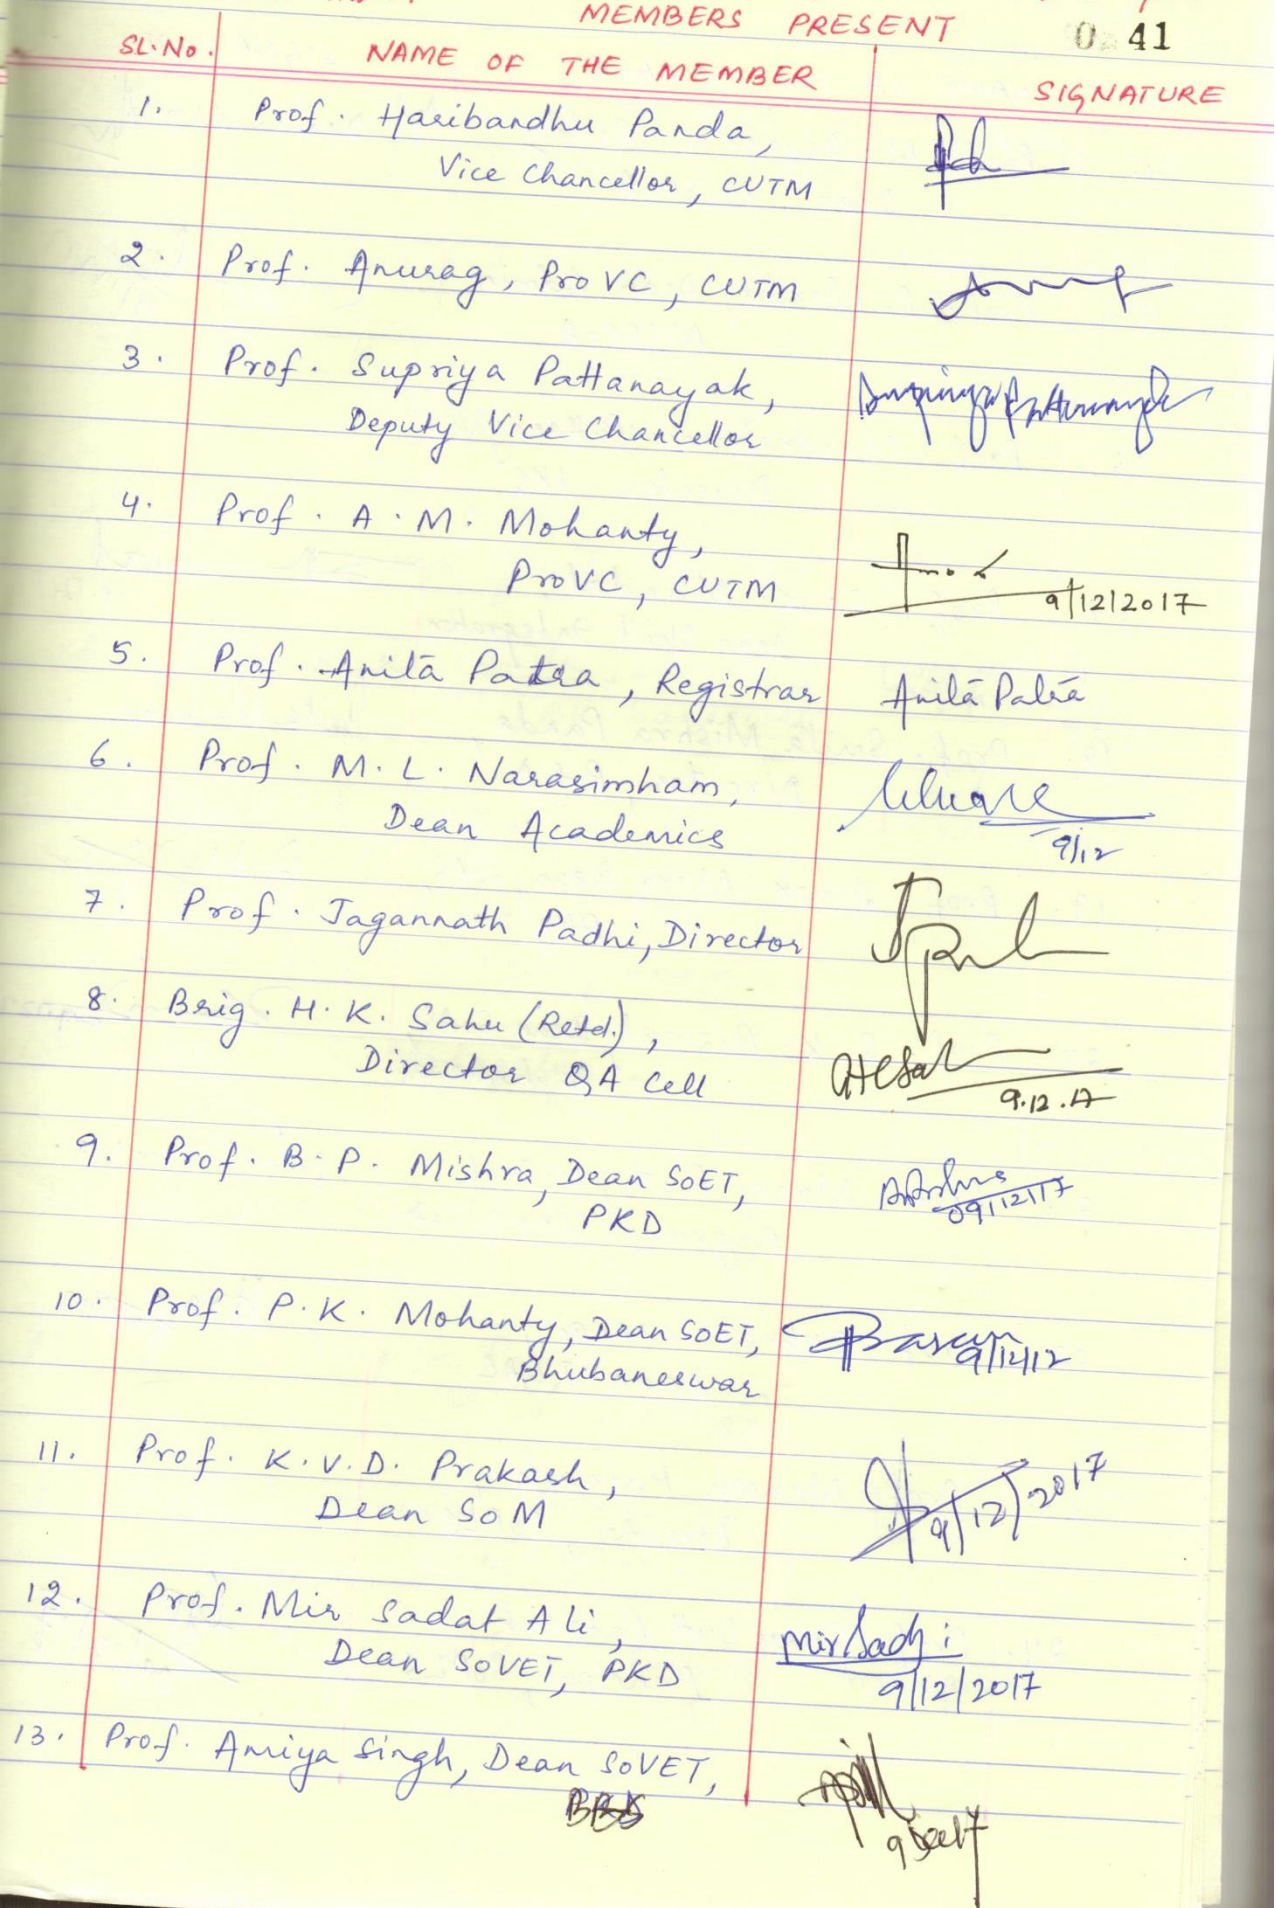 MEMBERS PRESENT
0 41
SL.No. NAME OF THE MEMBER SIGNATURE
1. Prof. Haribandhu Panda,
Vice Chancellor, CUTM
2. Prof. Anurag, ProVC, CUTM
3. Prof. Supriya Pattanayak, Supriya Pattanayak
Deputy Vice Chancellor
4. Prof. A.M. Mohanty,
ProVC, CUTM 9/12/2017
5. Prof. Anita Patra, Registrar Anita Patra
6. Prof. M.L. Narasimham,
Dean Academics 9/12
7. Prof. Jagannath Padhi, Director
8. Brig. H.K. Sahu (Retd.),
Director QA Cell 9.12.17
9. Prof. B.P. Mishra, Dean SoET,
PKD 09/12/17
10. Prof. P.K. Mohanty, Dean SoET,
Bhubaneswar
11. Prof. K.V.D. Prakash,
Dean SoM 9/12/2017
12. Prof. Mir Sadat Ali,
Dean SoVET, PKD 9/12/2017
13. Prof. Amiya Singh, Dean SoVET,
BBS